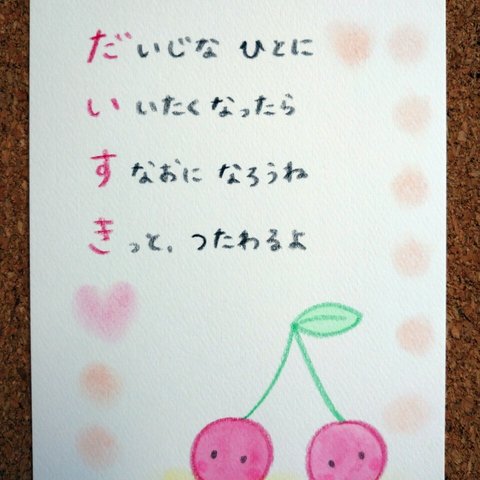 だいじな ひとに
いいたくなったら
すなおに なろうね
きっと、つたわるよ